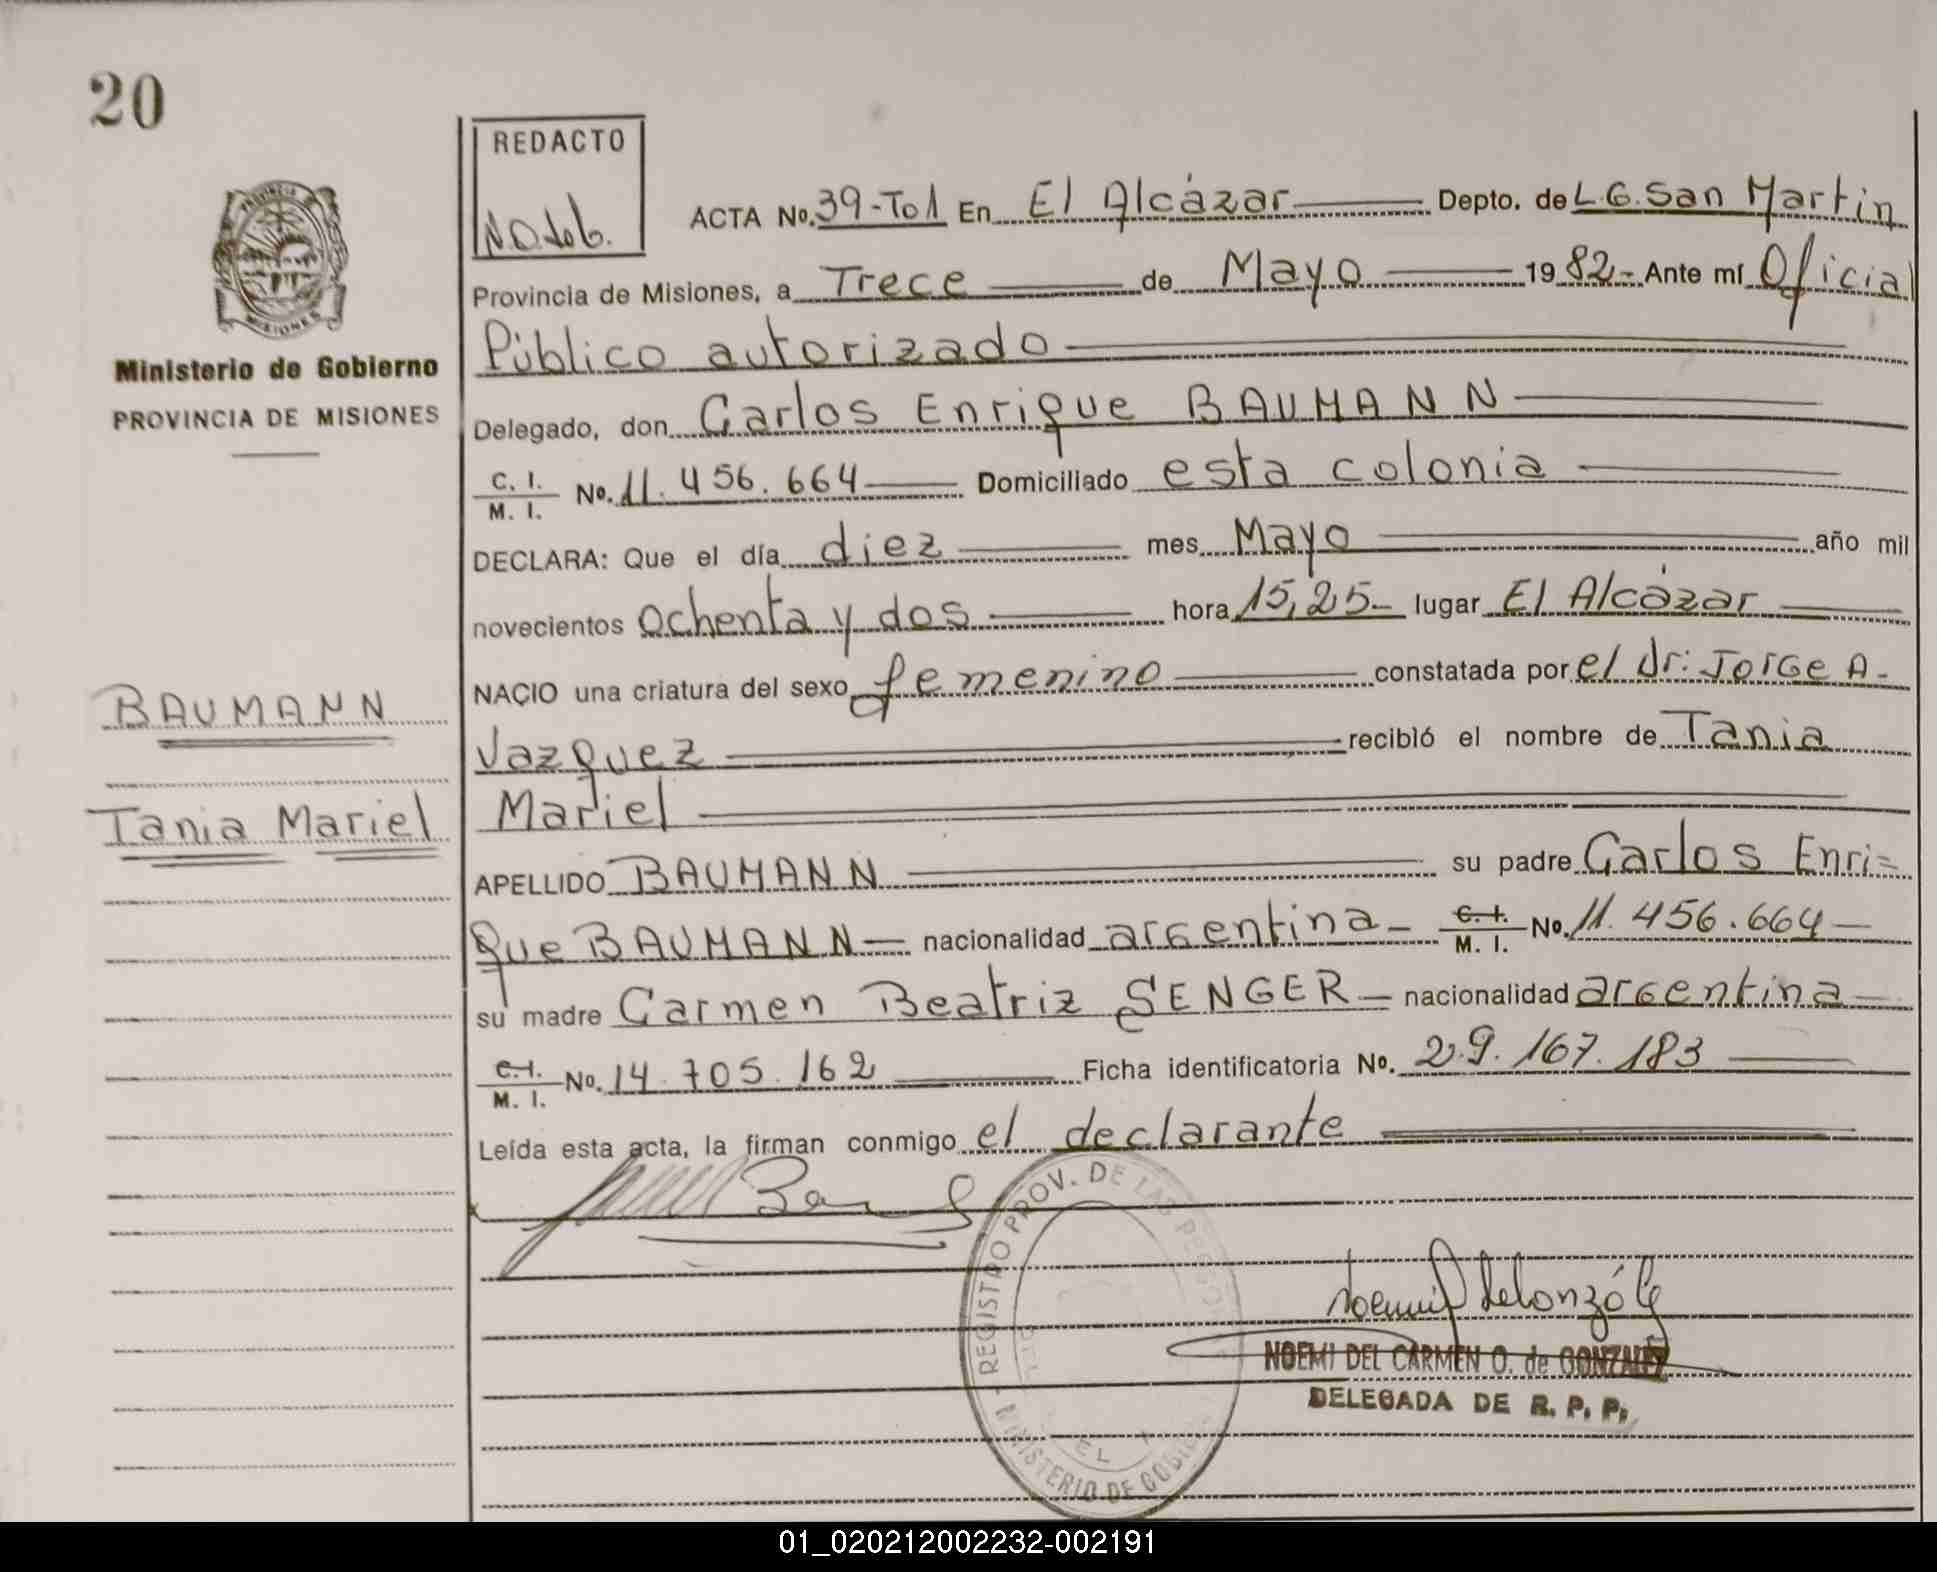 20
REDACTO
PROVINCIA
MISIONES
ACTA No. 39-Tо1 En El Alcázar Depto. de L.G. San Martin
Provincia de Misiones, a Trece de Mayo 1982- Ante mí Oficial
Público autorizado
Ministerio de Gobierno
PROVINCIA DE MISIONES
Delegado, don Carlos Enrique BAUMANN
C. I.
M. I. No. 11.456.664 Domiciliado esta colonia
DECLARA: Que el día diez mes Mayo año mil
novecientos ochenta y dos hora 15,25- lugar El Alcázar
NACIO una criatura del sexo femenino constatada por el dr: Jorge A-
Vazquez recibió el nombre de Tania
Mariel
BAUMANN
Tania Mariel
APELLIDO BAUMANN su padre Carlos Enri=
que BAUMANN- nacionalidad argentina- C. I.
M. I. No. 11.456.664-
su madre Carmen Beatriz SENGER- nacionalidad argentina-
C. I.
M. I. No. 14.705.162 Ficha identificatoria No. 29.167.183
Leída esta acta, la firman conmigo el declarante
REGISTRO PROV. DE LAS PERSONAS
MINISTERIO DE GOBIERNO
EL
NOEMI DEL CARMEN O. de GONZALEZ
DELEGADA DE R. P. P.
01_020212002232-002191